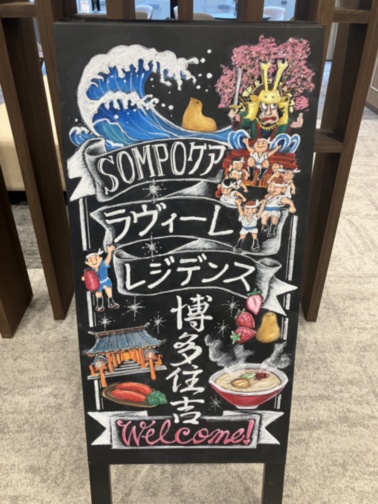 SOMPOケア
ラヴィーレ
レジデンス
博多住吉
Welcome!